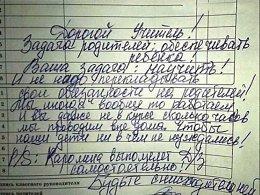 Дорогой Учитель!
Задача родителей: обеспечивать
ребёнка!
Ваша задача: научить!
И не надо перекладывать
свои обязанности на родителей!
Мы иногда вообще то работаем
И вы даже не в курсе сколько часов
мы проводим вне дома, чтобы
наши дети ни в чём не нуждались!
P/S: Каролина выполняет Д/З
самостоятельно!
Будьте снисходительней
классного руководителя